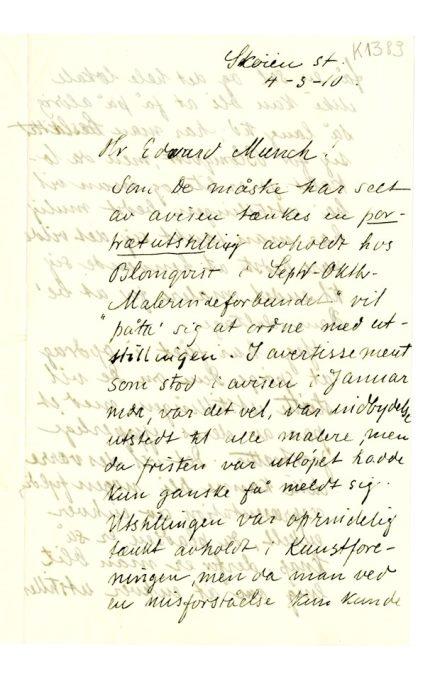 K1383
Skøien st.
4-3-10.
Hr. Edvard Munch!
Som De måske har seet
av avisen tænkes en por-
trætutstilling avholdt hos
Blomqvist i Septr-Oktbr.
Malerindeforbundet" vil
"påta" sig at ordne med ut-
stillingen. I avertissement
som stod i avisen i Januar
mdr, var det vel, var indbydelse
utstedt til alle malere, men
da fristen var utløpet hadde
kun ganske få meldt sig.
Utstillingen var oprindelig
tænkt avholdt i Kunstfore-
ningen, men da man ved
en misforståelse kun kunde